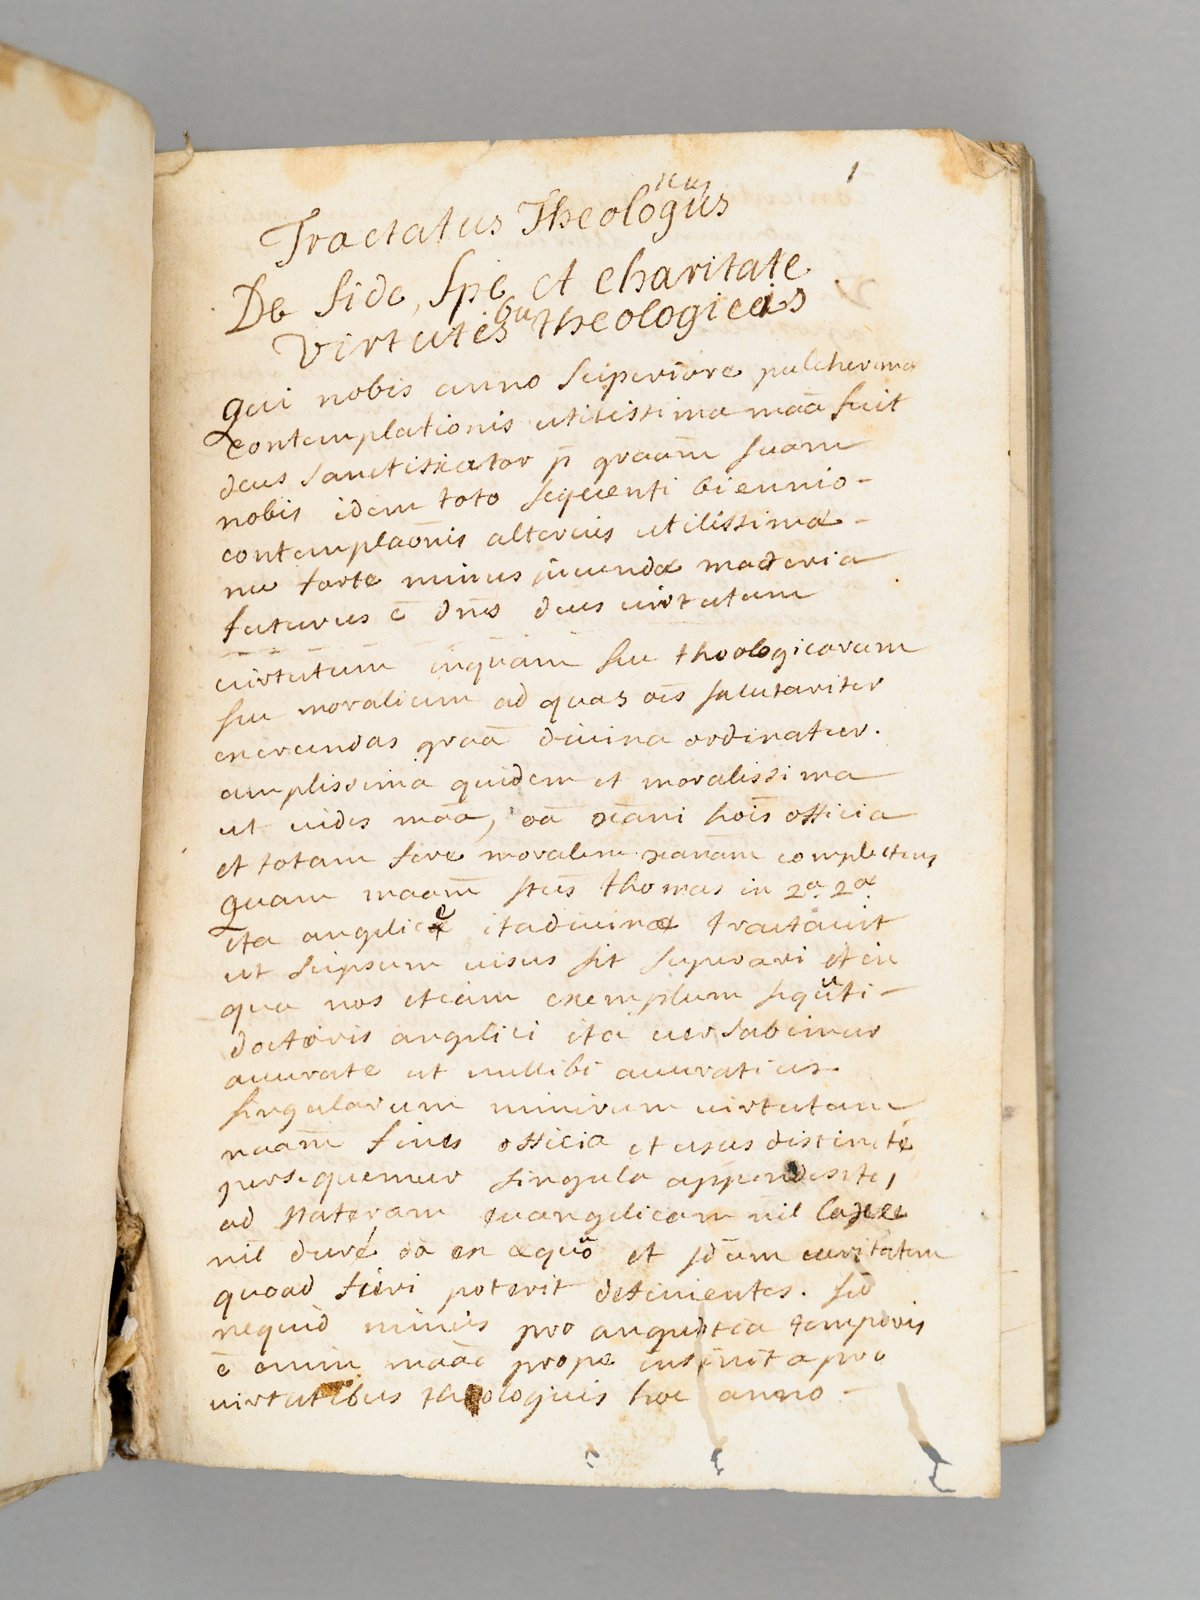 1
Tractatus Theologicus
De fide, spe et charitate
virtutibus theologicis
Qui nobis anno superiore pulcherima
contemplationis utilissima maā fuit
deus sanctificator p̄ graām suam
nobis idem toto sequenti biennio-
contemplaōnis alterius utilissimæ-
nec forte minus jucundæ materia
futurus ē dn̄s deus virtutum
virtutum inquam seu theologicarum
seu moralium ad quas oēs salutariter
exercendas graā divina ordinatur.
amplissima quidem et moralissima
ut vides maā, oā xāni hoīs officia
et totam fere moralem xanam complectens
Quam maām stūs thomas in 2ª. 2æ.
ita angelice ita divinæ tractavit
ut seipsum visus sit superari et in
qua nos etiam exemplum sequuti-
doctoris angelici ita versabimur
accurate ut nullibi accuratius.
singularum nimirum virtutum
naām fines officia et usus distincté
persequemur singula appendente,
ad stateram euangelicam nil laxee
nil duré oā ex æquo et sdūm veritatem
quoad fieri poterit definientes. sed
nequid nimis pro angustia temporis
ē enim maāe prope infinita pro
virtutibus theologicis hoc anno-